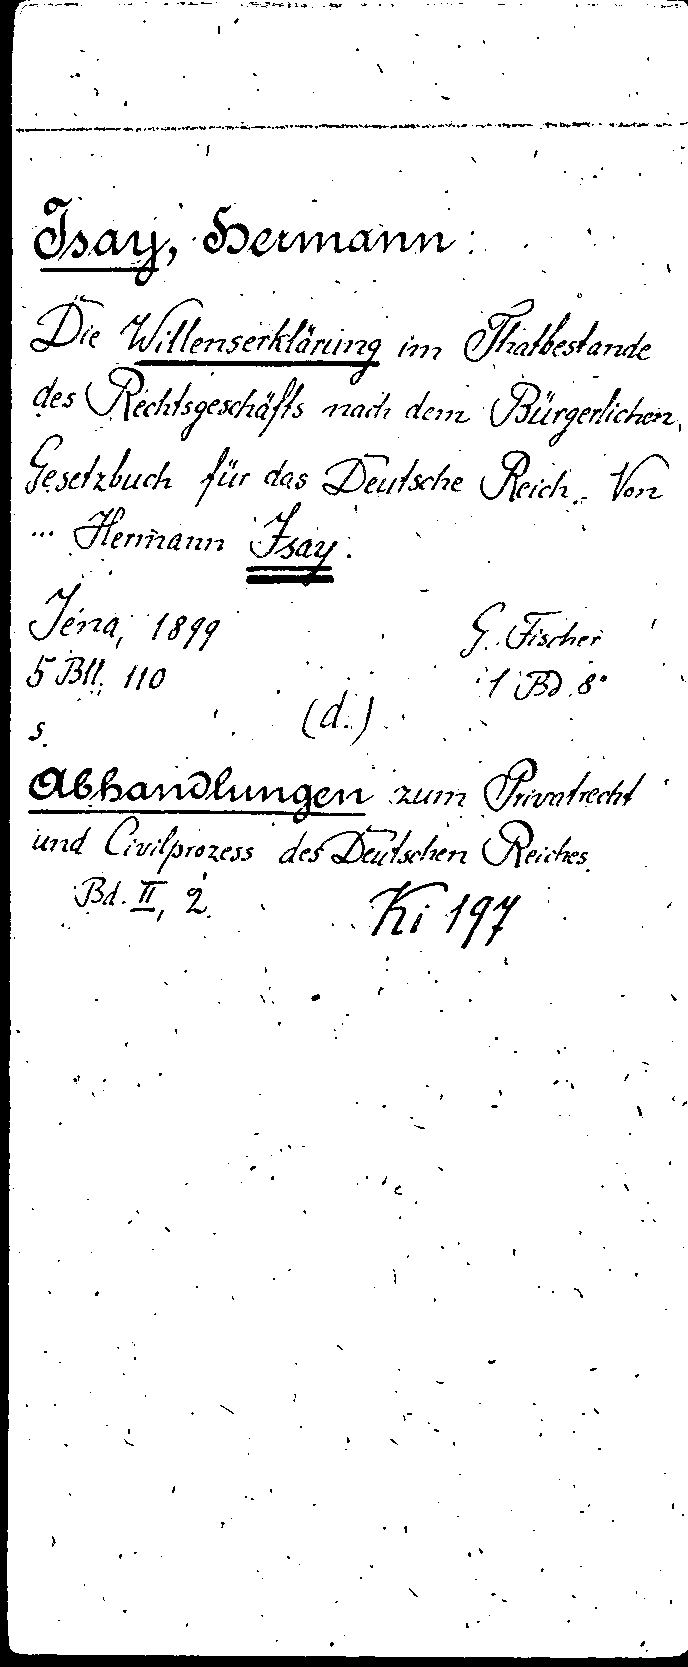 Isay, Hermann:
Die Willenserklärung im Thatbestande
des Rechtsgeschäfts nach dem Bürgerlichen
Gesetzbuch für das Deutsche Reich. Von
... Hermann Isay.
Jena, 1899 G. Fischer
5 Bll. 110 1 Bd. 8°
s. (d.)
Abhandlungen zum Privatrecht
und Civilprozess des Deutschen Reiches.
Bd. II, 2. Ki 197